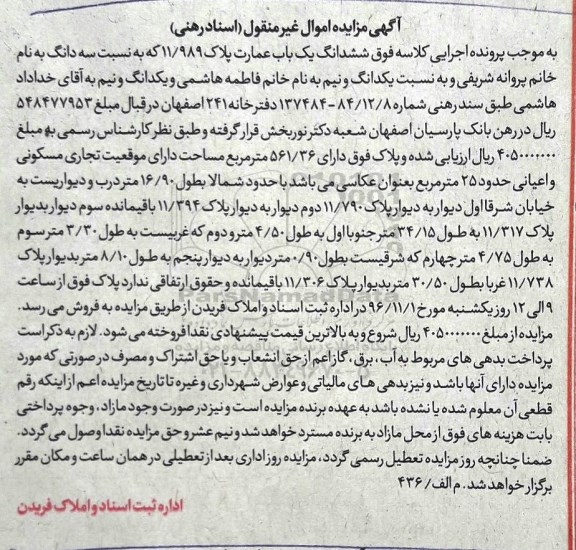 آگهی مزایده اموال غیر منقول (اسناد رهنی)
به موجب پرونده اجرایی کلاسه فوق ششدانگ یک باب عمارت پلاک ۱۱/۹۸۹ که به نسبت سه دانگ به نام
خانم پروانه شریفی و به نسبت یکدانگ و نیم به نام خانم فاطمه هاشمی و یکدانگ و نیم به آقای خداداد
هاشمی طبق سند رهنی شماره ۸۴/۱۲/۸ - ۱۳۷۴۸۴ دفترخانه ۲۴۱ اصفهان در قبال مبلغ ۵۴۸۴۷۷۹۵۳
ریال در رهن بانک پارسیان اصفهان شعبه دکتر نوربخش قرار گرفته و طبق نظر کارشناس رسمی به مبلغ
۴۰۵۰۰۰۰۰۰۰ ریال ارزیابی شده و پلاک فوق دارای ۵۶۱/۳۶ مترمربع مساحت دارای موقعیت تجاری مسکونی
و اعیانی حدود ۲۵ مترمربع بعنوان عکاسی می باشد با حدود شمالا بطول ۱۶/۹۰ متر درب و دیواریست به
خیابان شرقا اول دیوار به دیوار پلاک ۱۱/۷۹۰ دوم دیوار به دیوار پلاک ۱۱/۳۹۴ باقیمانده سوم دیوار بدیوار
پلاک ۱۱/۳۱۷ به طول ۳۴/۱۵ متر جنوبا اول به طول ۴/۵۰ متر و دوم که غربیست به طول ۳/۳۰ متر سوم
به طول ۴/۷۵ متر چهارم که شرقیست بطول ۰/۹۰ متر دیوار به دیوار پنجم به طول ۸/۱۰ متر بدیوار پلاک
۱۱/۷۳۸ غربا بطول ۳۰/۵۰ متر بدیوار پلاک ۱۱/۳۰۶ باقیمانده و حقوق ارتفاقی ندارد پلاک فوق از ساعت
۹ الی ۱۲ روز یکشنبه مورخ ۹۶/۱۱/۱ در اداره ثبت اسناد و املاک فریدن از طریق مزایده به فروش می رسد.
مزایده از مبلغ ۴۰۵۰۰۰۰۰۰۰ ریال شروع و به بالاترین قیمت پیشنهادی نقدا فروخته می شود. لازم به ذکر است
پرداخت بدهی های مربوط به آب، برق، گاز اعم از حق انشعاب و یا حق اشتراک و مصرف در صورتی که مورد
مزایده دارای آنها باشد و نیز بدهی های مالیاتی و عوارض شهرداری و غیره تا تاریخ مزایده اعم از اینکه رقم
قطعی آن معلوم شده یا نشده باشد به عهده برنده مزایده است و نیز در صورت وجود مازاد، وجوه پرداختی
بابت هزینه های فوق از محل مازاد به برنده مسترد خواهد شد و نیم عشر و حق مزایده نقدا وصول می گردد.
ضمنا چنانچه روز مزایده تعطیل رسمی گردد، مزایده روز اداری بعد از تعطیلی در همان ساعت و مکان مقرر
برگزار خواهد شد. م الف/ ۴۳۶
اداره ثبت اسناد و املاک فریدن